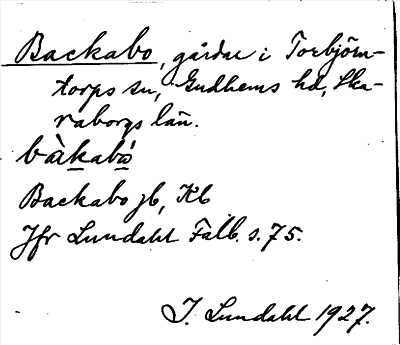 Backabo, gårdar i Torbjörn-
torps sn, Gudhems hd, Ska-
raborgs län.
bàkabó
Backabo jb, Kb
Jfr Lundahl Falb. s. 75.
I. Lundahl 1927.